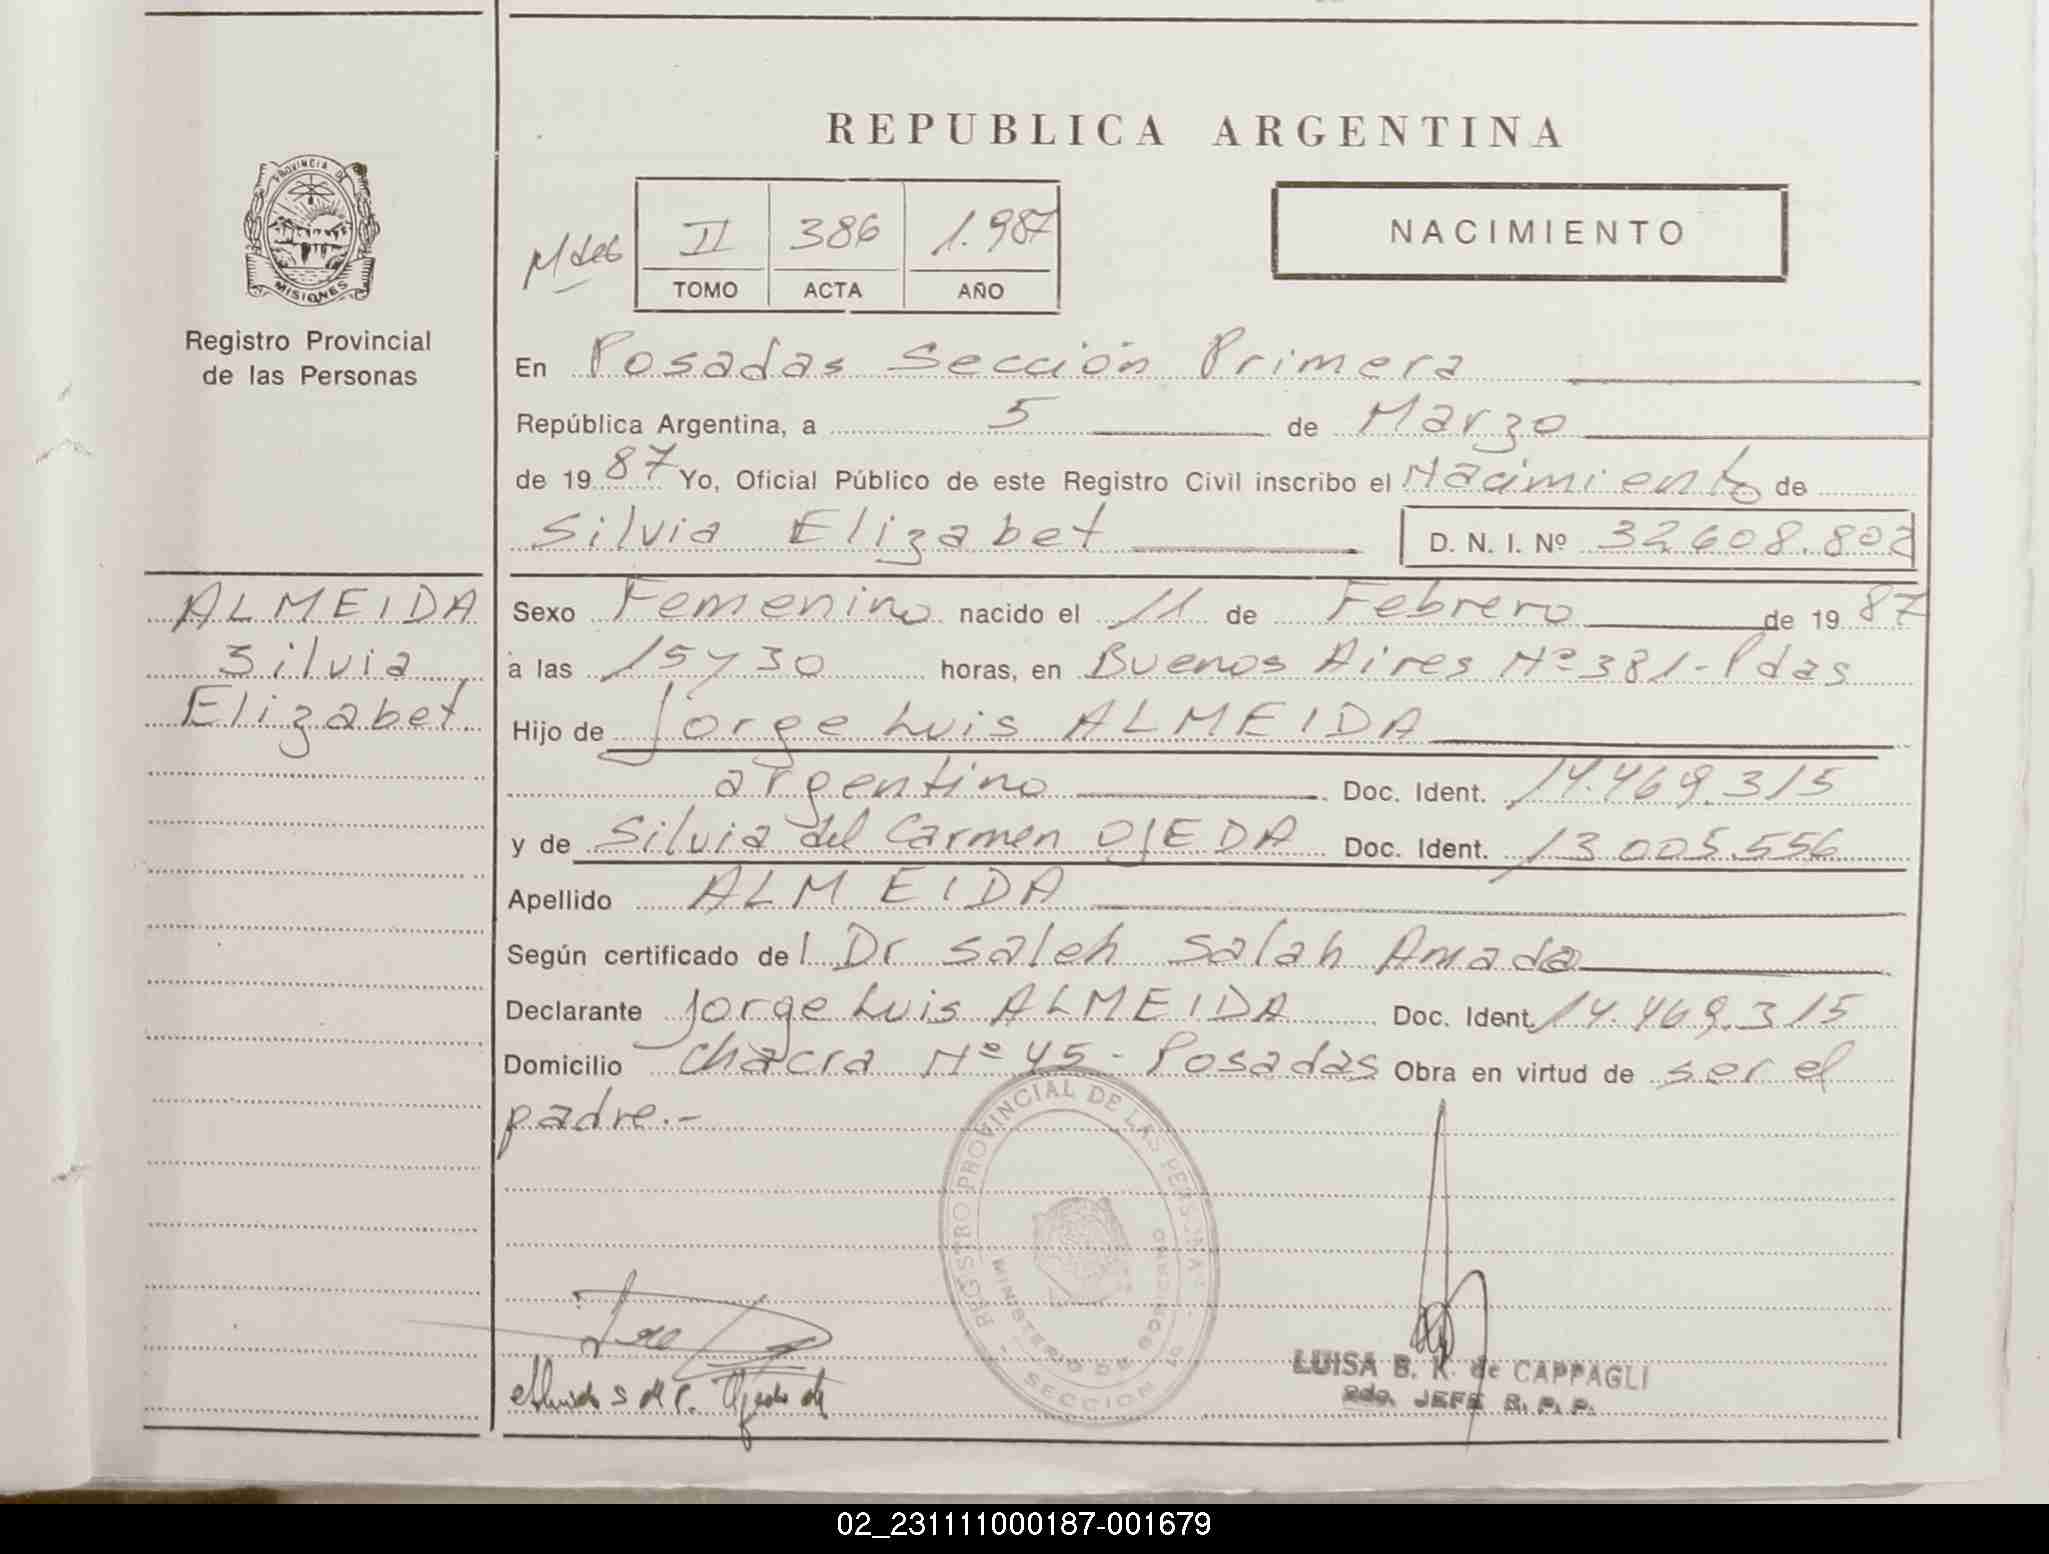 REPUBLICA ARGENTINA
PROVINCIA DE
MISIONES
Registro Provincial
de las Personas
II 386 1.987
TOMO ACTA AÑO
NACIMIENTO
En Posadas Sección Primera
República Argentina, a 5 de Marzo
de 1987 Yo, Oficial Público de este Registro Civil inscribo el Nacimiento de
Silvia Elizabet D. N. I. Nº 32.608.802
ALMEIDA
Silvia
Elizabet
Sexo Femenino nacido el 11 de Febrero de 1987
a las 15 y 30 horas, en Buenos Aires Nº 381 - Pdas
Hijo de Jorge Luis ALMEIDA
argentino Doc. Ident. 14.469.315
y de Silvia del Carmen OJEDA Doc. Ident. 13.005.556
Apellido ALMEIDA
Según certificado del Dr Saleh Salah Amada
Declarante Jorge Luis ALMEIDA Doc. Ident. 14.469.315
Domicilio Chacra Nº 45 - Posadas Obra en virtud de ser el
padre.-
REGISTRO PROVINCIAL DE LAS PERSONAS
MINISTERIO DE GOBIERNO
SECCION
LUISA B. K. de CAPPAGLI
2do. JEFE R. P. P.
02_231111000187-001679